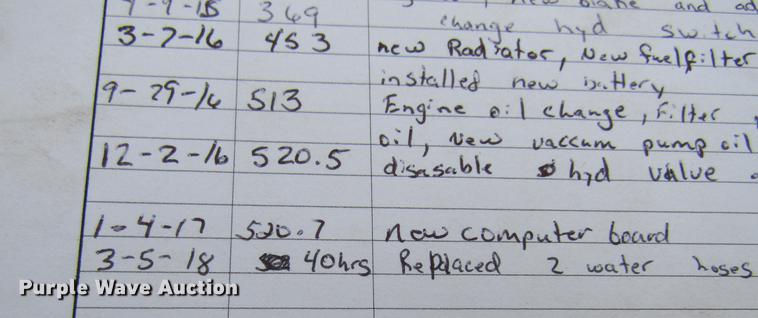 9-9-15 369 new blade and ad
change hyd switch
3-7-16 453 new Radiator, New fuelfilter
installed new battery
9-29-16 513 Engine oil change, Filter
oil, New vaccum pump oil
12-2-16 520.5 disasable hyd value
1-4-17 520.7 new computer board
3-5-18 40hrs Replaced 2 water hoses
Purple Wave Auction